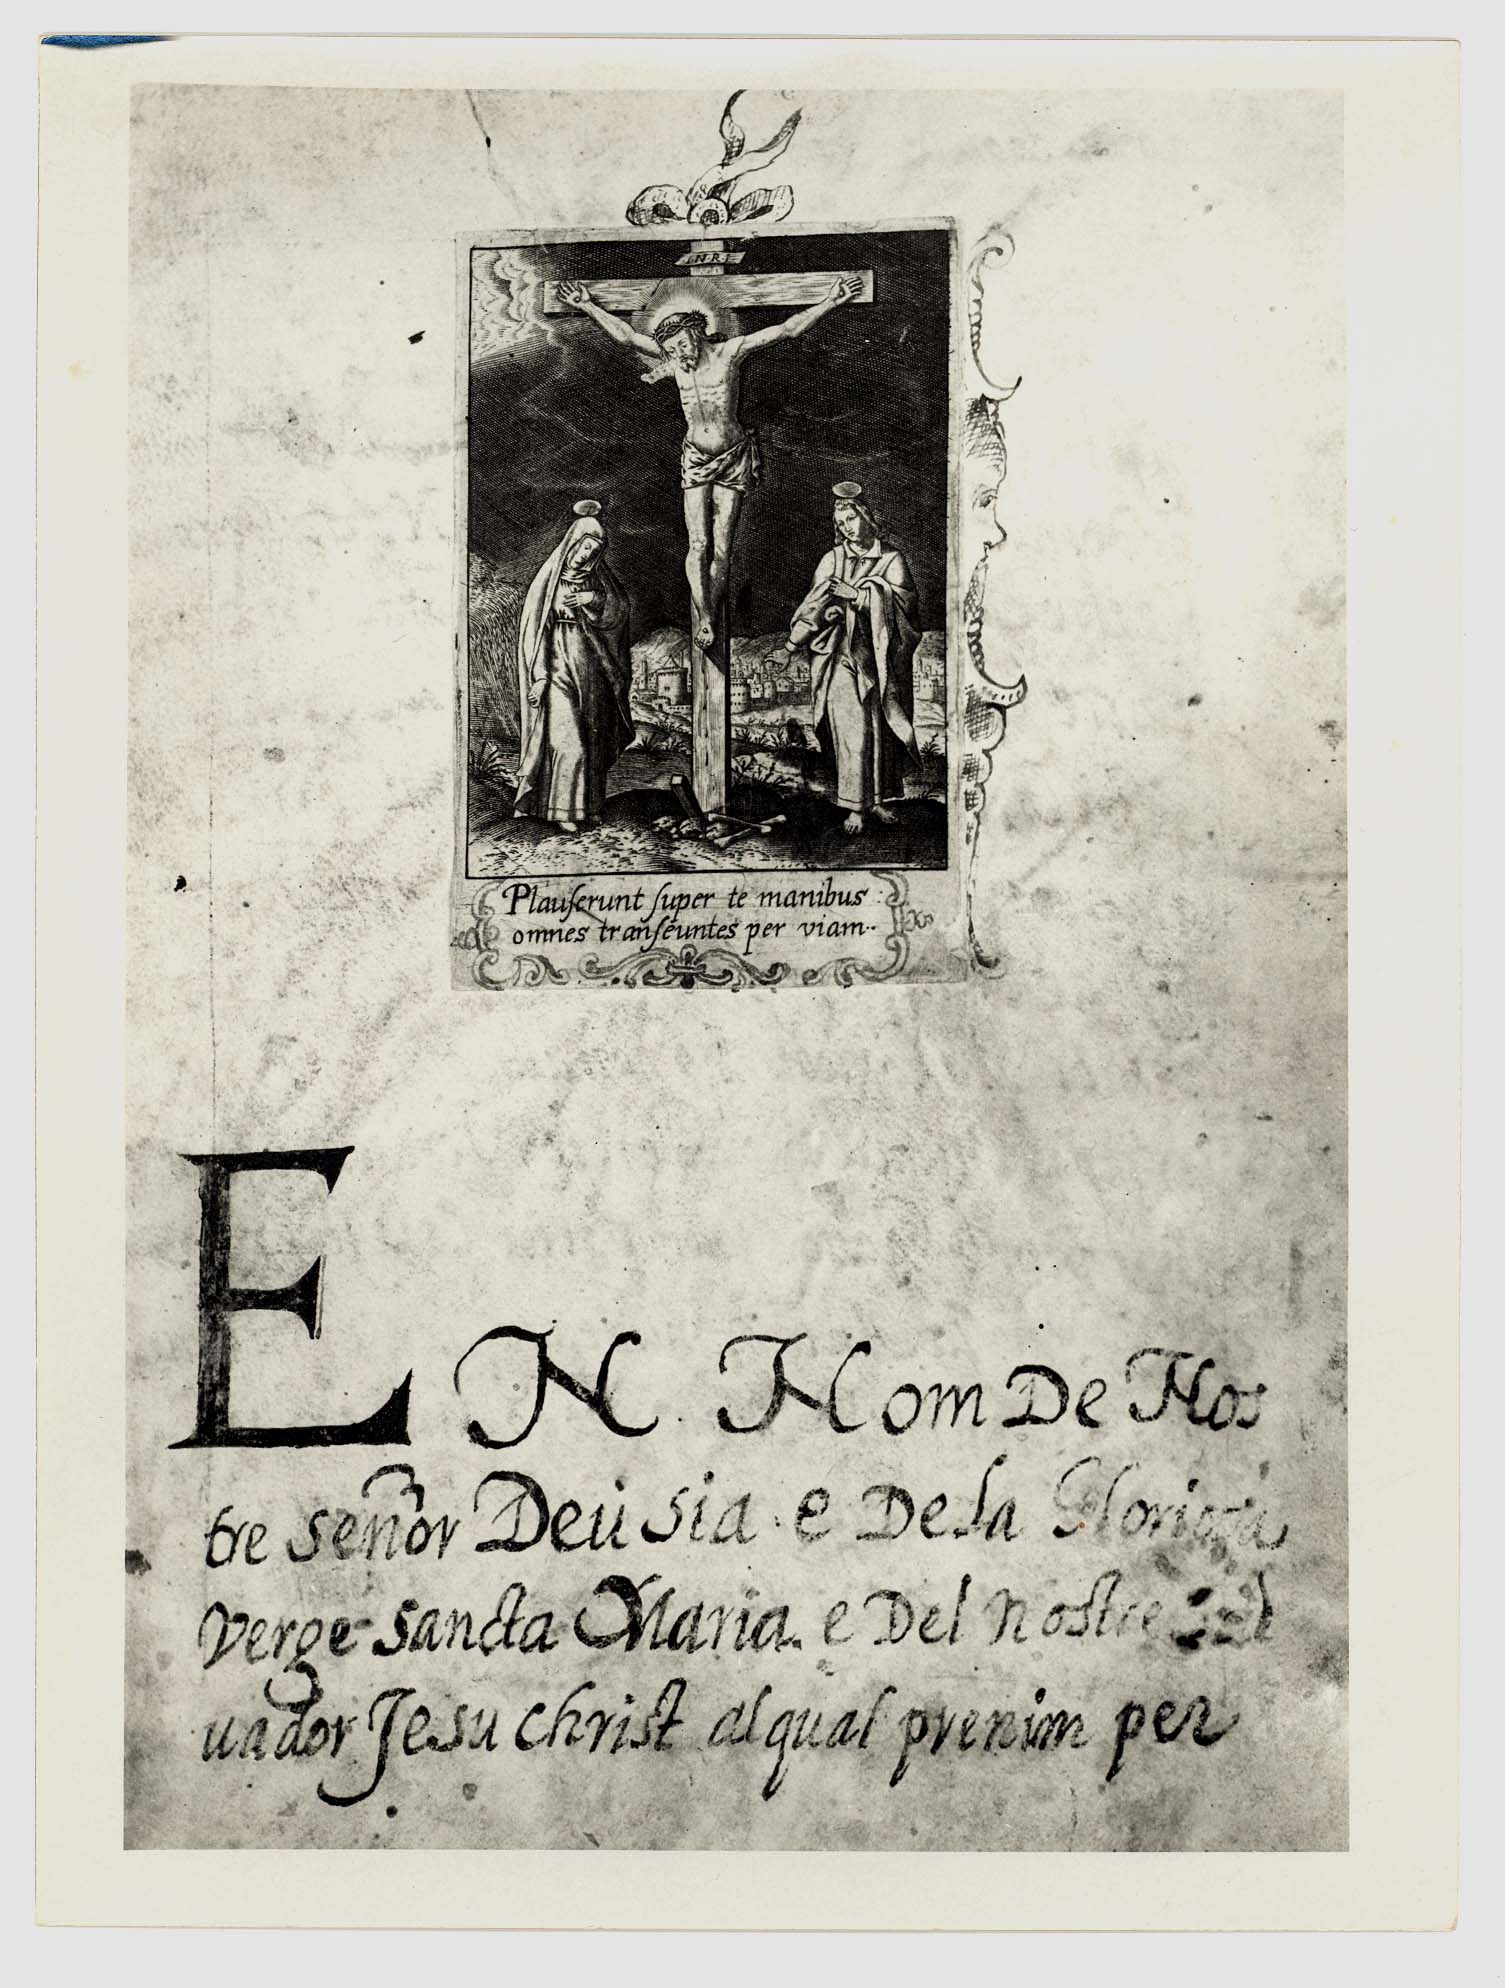 I.N.R.I
Plauſerunt ſuper te manibus
omnes tranſeuntes per viam
EN Nom De Nos
tre señor Deu sia e De la Gloriosa
Verge sancta Maria. e Del nostre
uador Jesu christ al qual prenim per